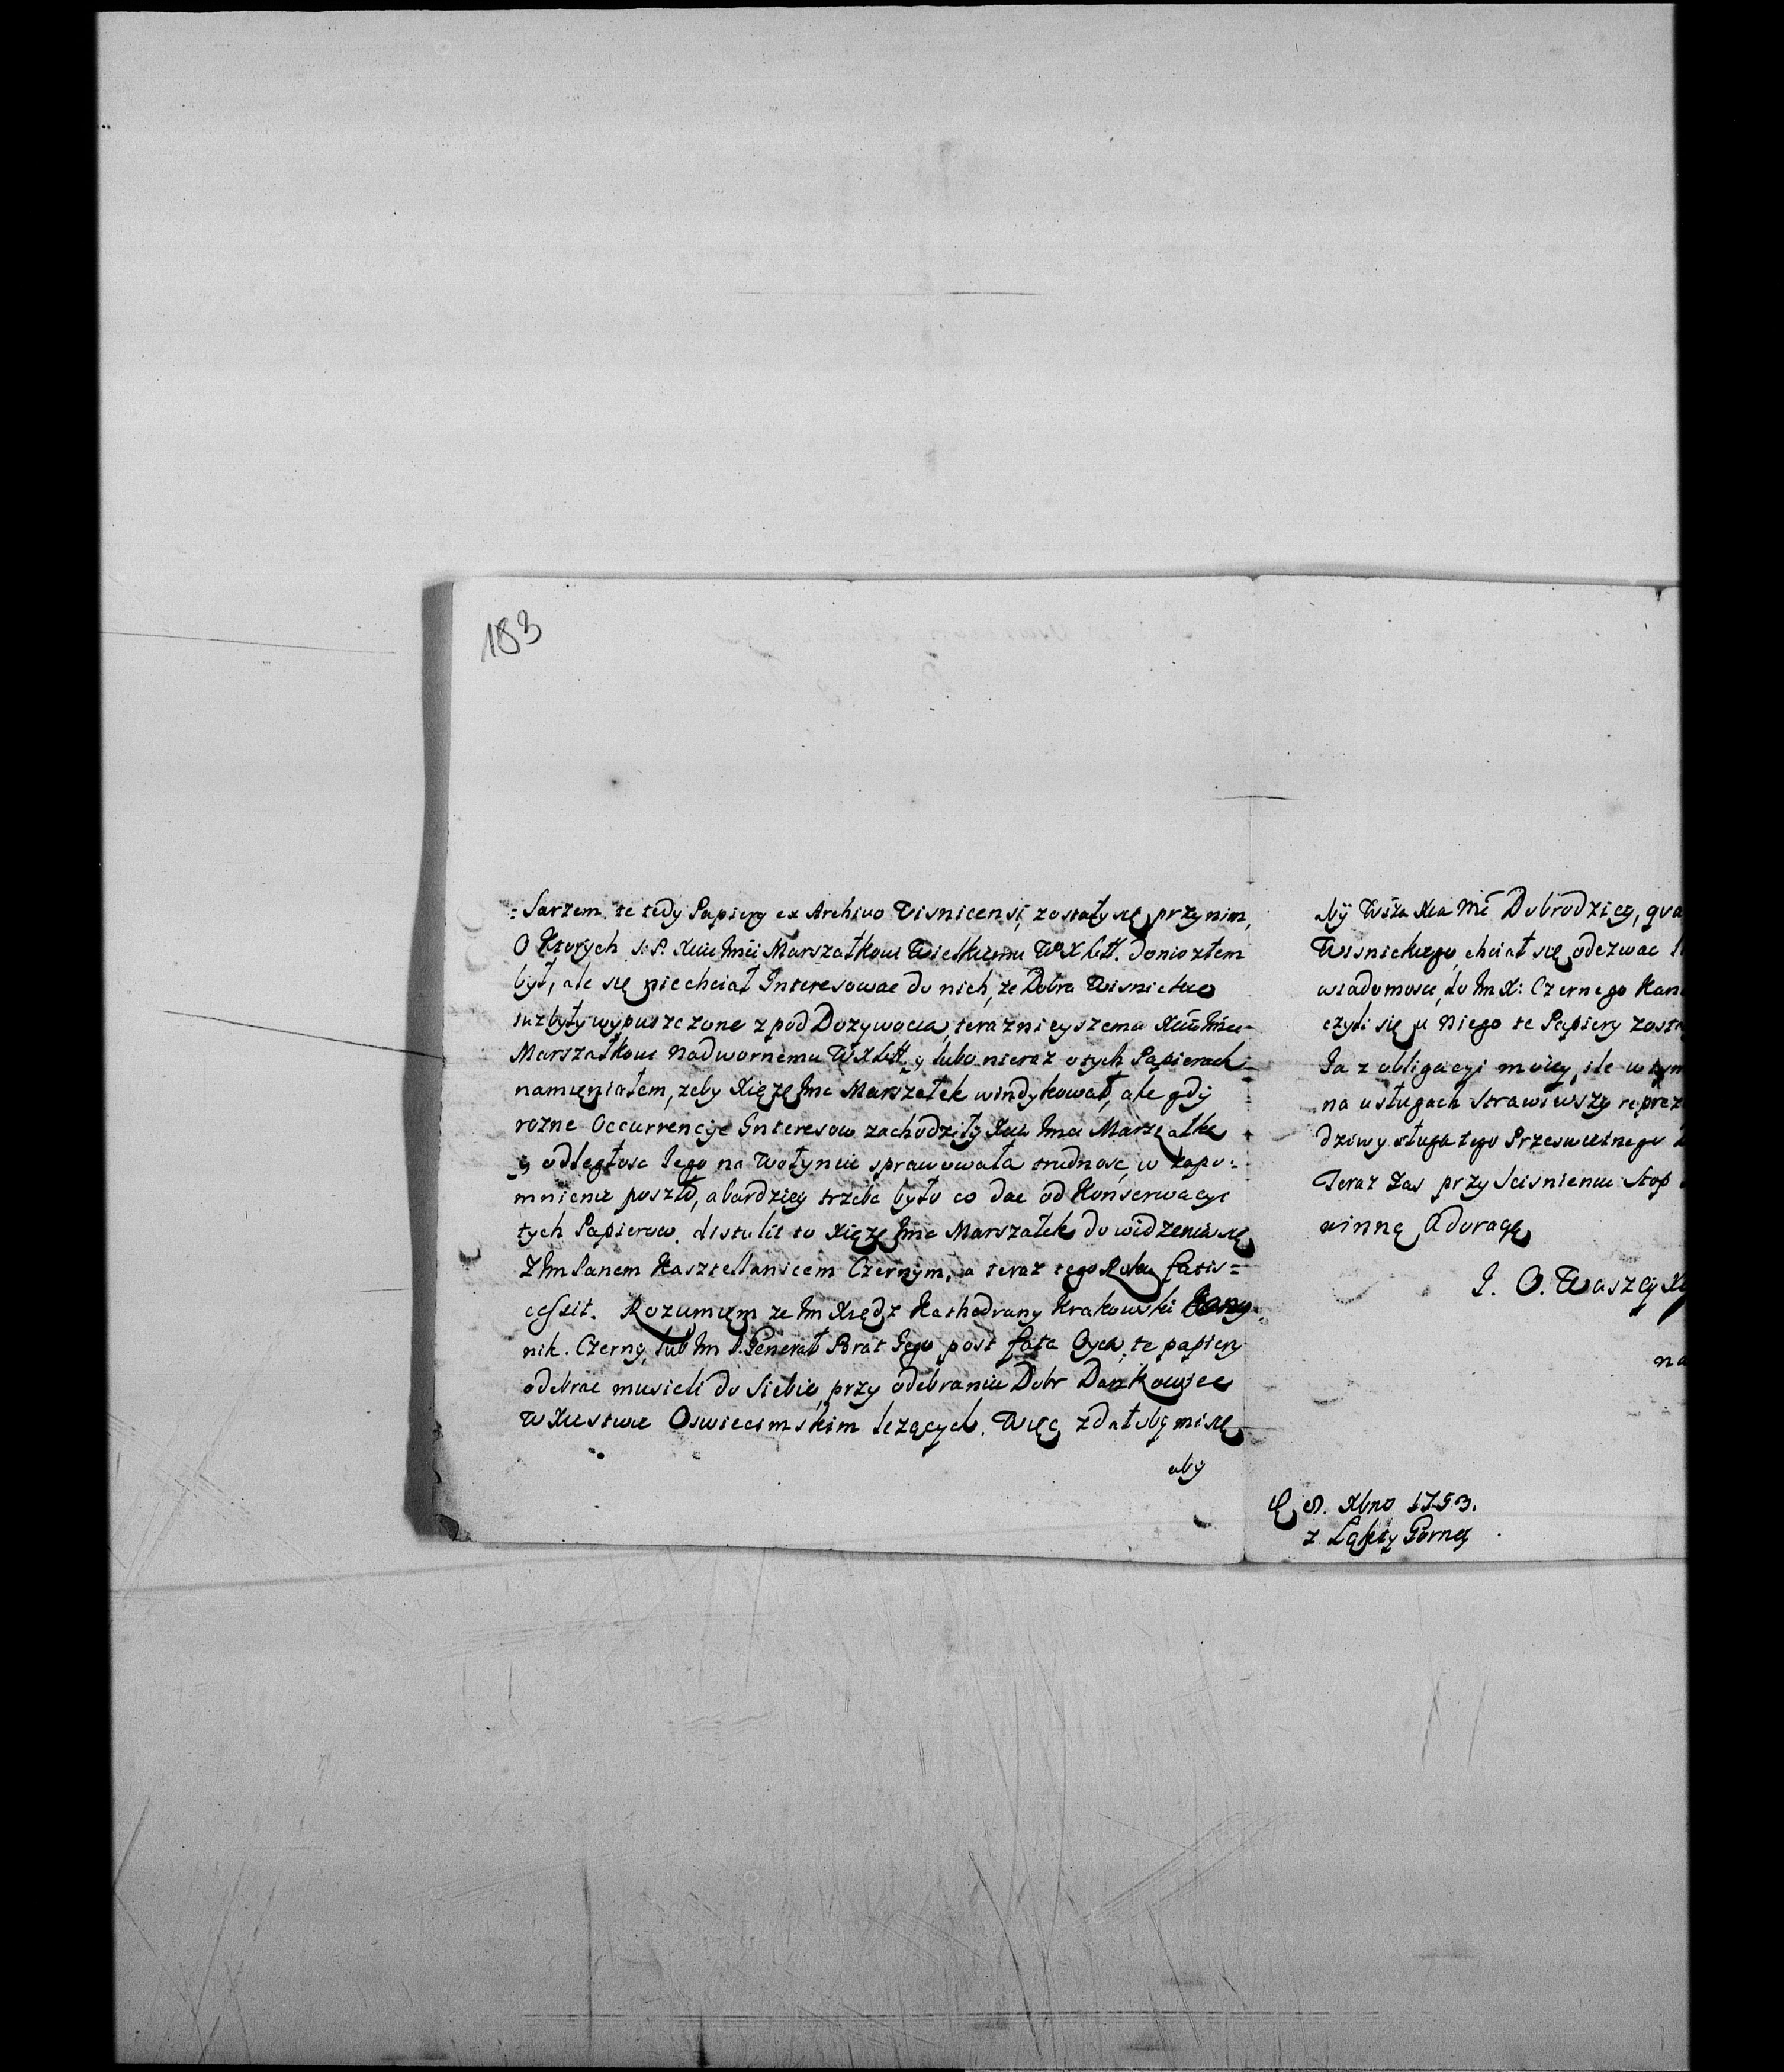 183
=sarzem. te tedy Papiery ex Archivo Visnicensi, zostały się przy nim,
O ktorych S: P. Xciu Jmci Marszałkowi Wielkiemu W X Litt. doniozłem
był, ale się niechciał Interesowac do nich, ze Dobra Wisnickie
iuz były wypuszczone z pod Dozywocia, teraznieyszemu Xciu Jmci
Marszałkowi Nadwornemu W X Litt. y lubo nieraz o tych Papierach
namieniałem, zeby Xiąze Jmc Marszałek windykował, ale gdy
rozne Occurrencye Interesow zachodziły Xcia Jmci Marszałka
y odległosc Jego na Wołyniu sprawowała trudnosc, w zapo=
mnienie poszło, a bardziey trzeba było co dac od Konserwacyi
tych Papierow. distulit to Xiąze Jmc Marszałek do widzenia się
Z Jm Panem Kasztellanicem Czernym, a teraz tego Roku fatis=
cessit. Rozumiem ze Jm Xiądz Kathedrany Krakowski Kano=
nik. Czerny, lub Jm P. Generał Brat Jego post fata Oyca, te papiery
odebrac musieli do Siebie, przy odebraniu Dobr Dankowice
W Xiestwie Oswiecimskim lezących. Więc zdałoby mi się
aby
aby Wsza Xca Mć Dobrodziey, qua
Wisnickiego, chciał się odezwac
wiadomosci, do Jm X: Czernego Kan
czyli się u Niego te Papiery zosta
Ja z obligacyi moiey, ile w tym
na usługach strawiwszy reprez
dziwy sługa tego Przeswietnego
Teraz Zas przy scisnieniu Stop
winną Adoracyę
J. O. Waszey X
na
D 8. Xbris 1753.
z Łąkty Gorney